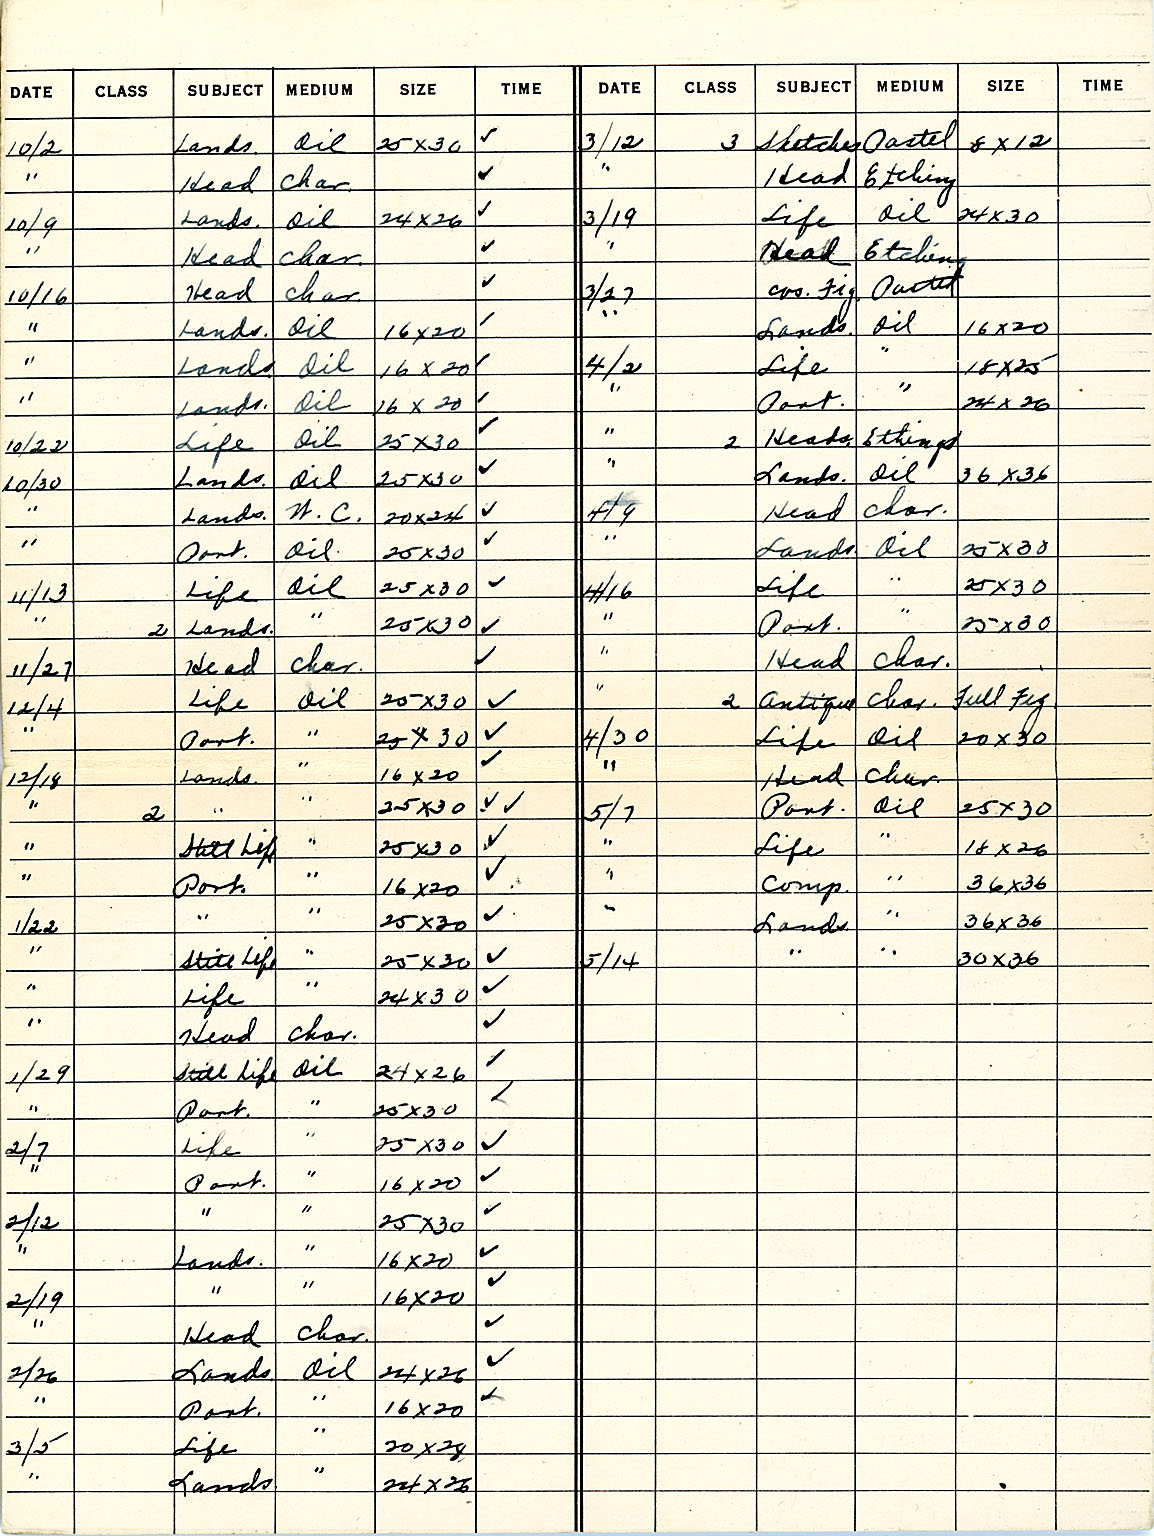 DATE CLASS SUBJECT MEDIUM SIZE TIME
10/2 Lands. Oil 25x30 ✓
" Head Char. ✓
10/9 Lands. Oil 24x26 ✓
" Head Char. ✓
10/16 Head Char. ✓
" Lands. Oil 16x20 ✓
" Lands Oil 16x20 ✓
" Lands. Oil 16x20 ✓
10/22 Life Oil 25x30 ✓
10/30 Lands. Oil 25x30 ✓
" Lands. W.C. 20x24 ✓
" Port. Oil. 25x30 ✓
11/13 Life Oil 25x30 ✓
" 2 Lands. " 25x30 ✓
11/27 Head Char. ✓
12/4 Life Oil 25x30 ✓
" Port. " 25x30 ✓
12/18 Lands. " 16x20 ✓
" 2 " " 25x30 ✓✓
" Still Life " 25x30 ✓
" Port. " 16x20 ✓
1/22 " " 25x30 ✓
" Still Life " 25x30 ✓
" Life " 24x30 ✓
" Head Char. ✓
1/29 Still Life Oil 24x26 ✓
" Port. " 25x30 ✓
2/7 Life " 25x30 ✓
" Port. " 16x20 ✓
2/12 " " 25x30 ✓
" Lands. " 16x20 ✓
2/19 " " 16x20 ✓
" Head Char. ✓
2/26 Lands Oil 24x26 ✓
" Port. " 16x20 ✓
3/5 Life " 20x28
" Lands " 24x26
DATE CLASS SUBJECT MEDIUM SIZE TIME
3/12 3 Sketches Pastel 8x12
" Head Etching
3/19 Life Oil 24x30
" Head Etching
3/27 Cos. Fig. Pastel
" Lands. Oil 16x20
4/2 Life " 18x25
" Port. " 24x26
" 2 Heads. Ethings
" Lands. Oil 36x36
4/9 Head Char.
" Lands. Oil 25x30
4/16 Life " 25x30
" Port. " 25x30
" Head Char.
" 2 Antique Char. Full Fig.
4/30 Life Oil 20x30
" Head Char.
5/7 Port. Oil 25x30
" Life " 18x26
" Comp. " 36x36
" Lands. " 36x36
5/14 " " 30x36